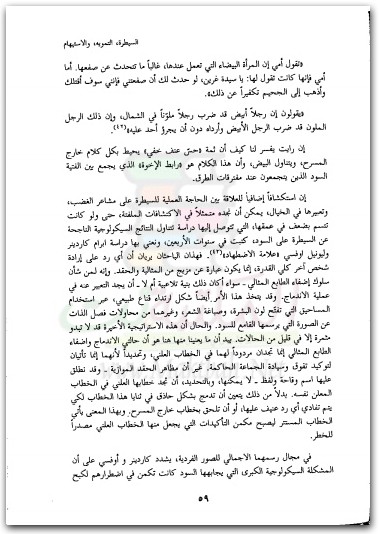 السيطرة، التمويه، والاستيهام
«تقول أمي إن المرأة البيضاء التي تعمل عندها، غالباً ما تتحدث عن صفعها. أما
أمي فإنها كانت تقول لها: يا سيدة غرين، لو حدث لك أن صفعتني فإنني سوف أقتلك
وأذهب إلى الجحيم تكفيراً عن ذلك».
«يقولون إن رجلاً أبيض قد ضرب رجلاً ملوّناً في الشمال، وإن ذلك الرجل
الملون قد ضرب الرجل الأبيض وأرداه دون أن يجرؤ أحد عليه»(٤٢).
إن رايت يفسر لنا كيف أن ثمة «حسّ عنف خفي» يحيط بكل كلام خارج
المسرح، ويتناول البيض، وأن هذا الكلام هو «رابط الإخوة» الذي يجمع بين الفتية
السود الذين يتجمعون عند مفترقات الطرق.
إن استكشافاً إضافياً للعلاقة بين الحاجة العملية للسيطرة على مشاعر الغضب،
وتعبيرها في الخيال، يمكن أن نجده متمثلاً في الاكتشافات الملفتة، حتى ولو كانت
تتسم بضعف في عمقها، التي تتوصل إليها دراسة تتناول النتائج السيكولوجية الناجحة
عن السيطرة على السود، كتبت في سنوات الأربعين، ونعني بها دراسة ابرام كاردينر
وليونيل اوفسي «علامة الاضطهاد»(٤٣). فهذان الباحثان يريان أن أي رد على إرادة
شخص آخر كلي القدرة، إنما يكون عبارة عن مزيج من المثالية والحقد. وإنه لمن شأن
سلوك إضفاء الطابع المثالي ـ سواء أكان ذلك بنية تلاعبية أم لا ـ أن يجد التعبير عنه في
عملية الاندماج. وقد يتخذ هذا الأمر أيضاً شكل ارتداء قناع طبيعي، عبر استخدام
المساحيق التي تفتّح لون البشرة، وصباغة الشعر، وغيرهما من محاولات فصل الذات
عن الصورة التي يرسمها القامع للسود. والحال أن هذه الاستراتيجية الأخيرة قد لا تبدو
مثمرة إلا في قليل من الحالات. بيد أن ما يعنينا منها هنا هو أن حالتي الاندماج وإضفاء
الطابع المثالي إنما تجدان مردوداً لهما في الخطاب العلني، وتحديداً لأنهما إنما تأتيان
لتوكيد تفوق وسيادة الجماعة الحاكمة. غير أن مظاهر الحقد الموازية ـ وقد نطلق
عليها اسم وقاحة ولفظ ـ لا يمكنها، وبالتحديد، أن تجد خطابها العلني في الخطاب
المعلن نفسه. بدلاً من ذلك يتعين أن تدمج بشكل حاذق في ثنايا هذا الخطاب لكي
يتم تفادي أي رد عنيف عليها، أو أن تلحق بخطاب خارج المسرح. وبهذا المعنى يأتي
الخطاب المستتر ليصبح مكمن التأكيدات التي يجعل منها الخطاب العلني مصدراً
للخطر.
في مجال رسمهما الاجمالي للصور الفردية، يشدد كاردينر و أوفسي على أن
المشكلة السيكولوجية الكبرى، التي يجابهها السود كانت تكمن في اضطرارهم لكبح
٥٩